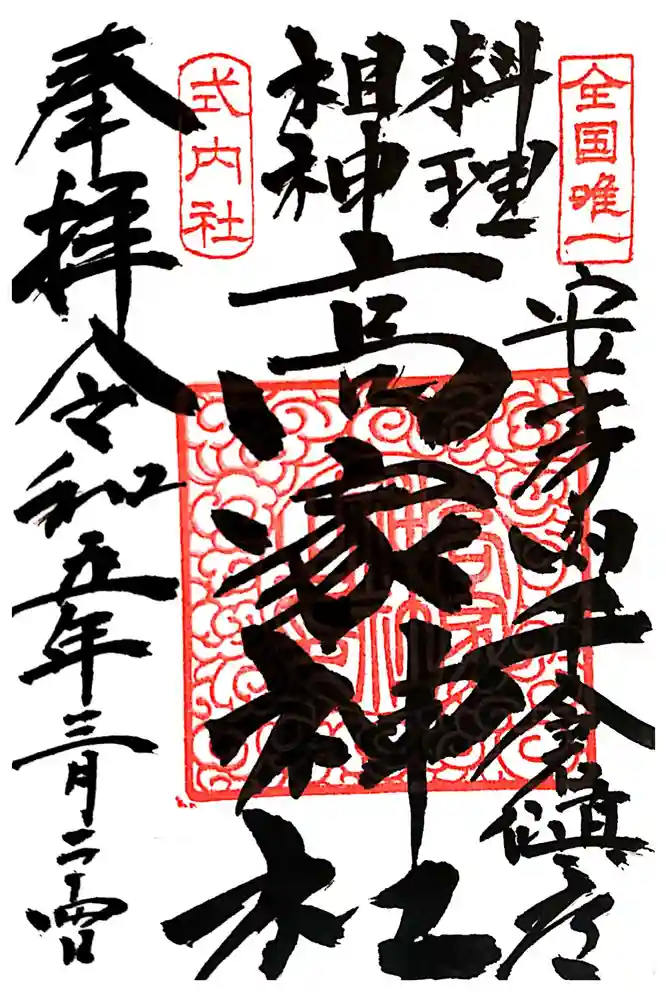 全国唯一
安房国千倉鎮座
料理
祖神
高家神社
式内社
奉拝令和五年三月二十四日